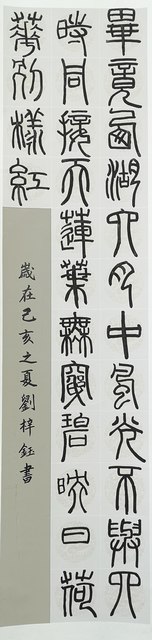 畢竟西湖六月中風光不與四
時同接天蓮葉無窮碧映日荷
花別樣紅
歲在己亥之夏劉梓鈺書